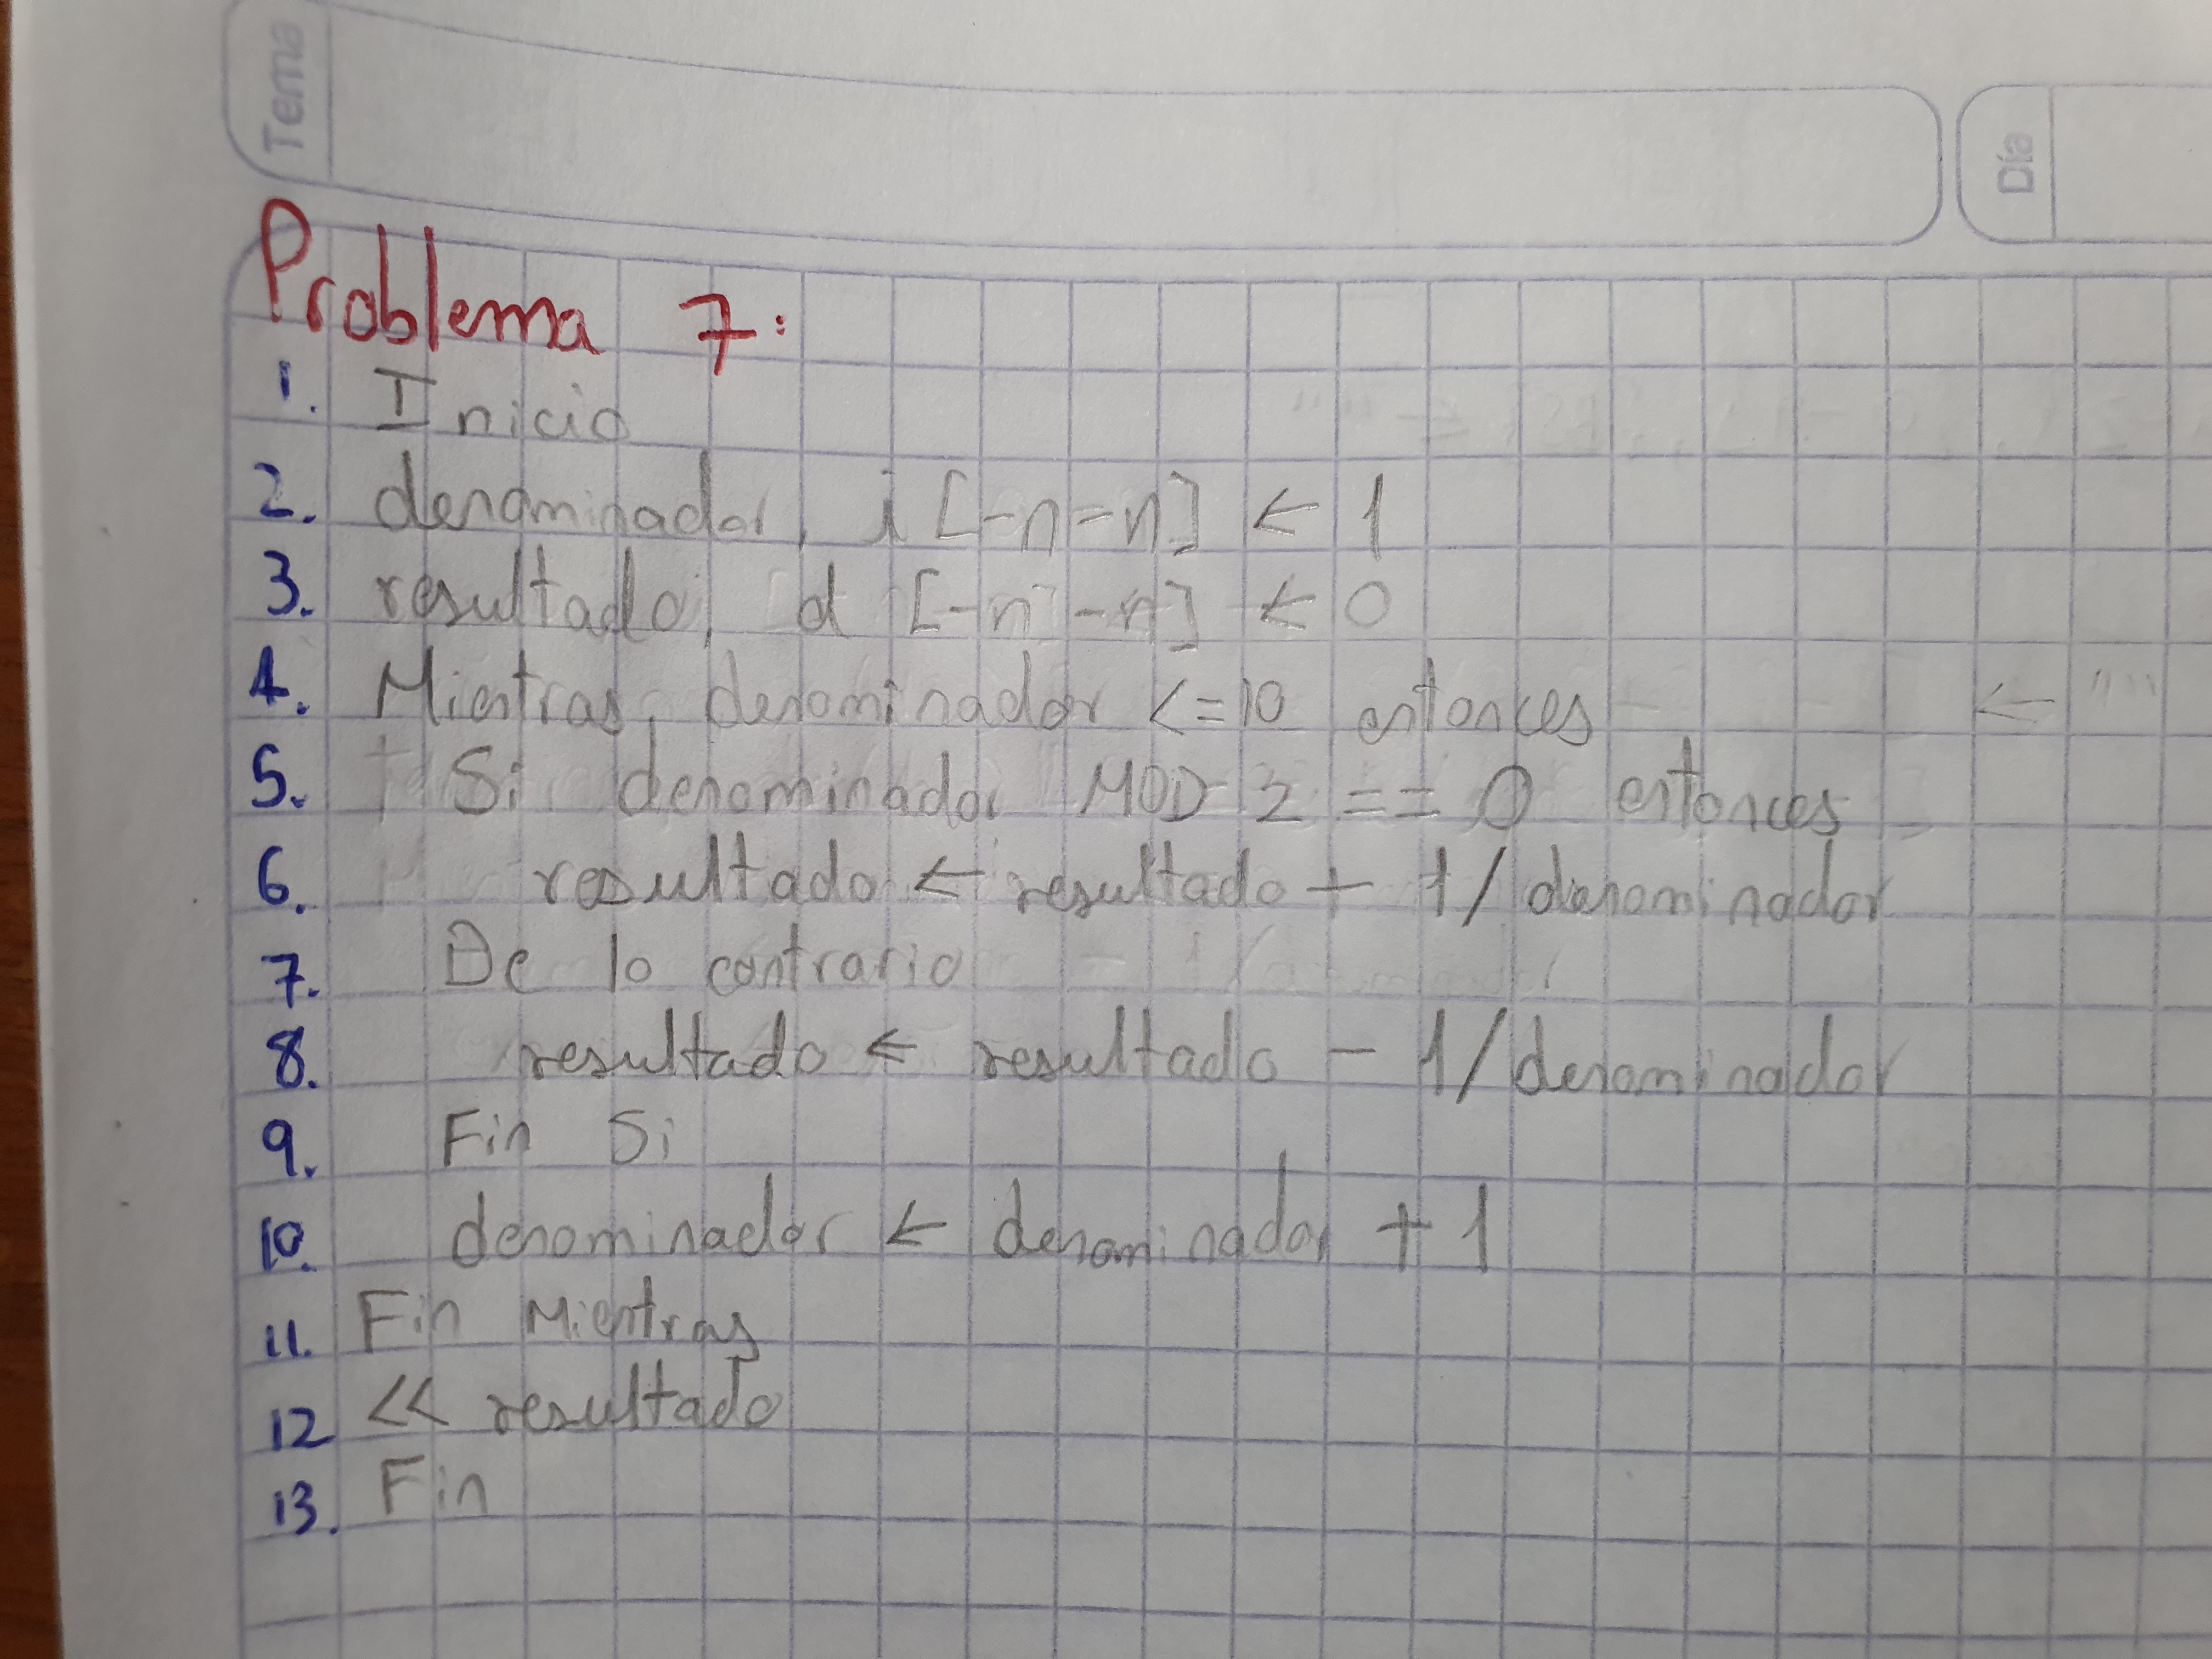 Tema
Día
Problema 7:
1. Inicio
2. denominador, i [-n=n] ← 1
3. resultado, d [-n -n] ← 0
4. Mientras, denominador <=10 entonces ← ""
5. Si denominador MOD 2 == 0 entonces
6. resultado ← resultado + 1/denominador
7. De lo contrario
8. resultado ← resultado - 1/denominador
9. Fin Si
10. denominador ← denominador + 1
11. Fin Mientras
12 << resultado
13. Fin